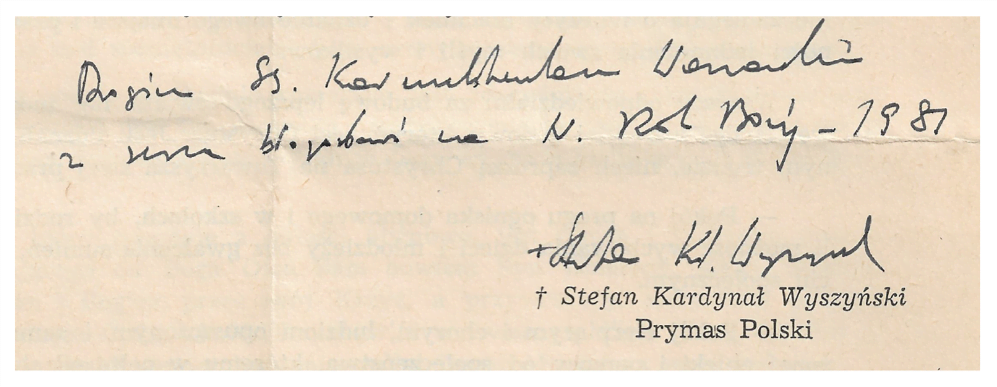 Drogim SS. Karmelitankom
z serca błogosławi na N. Rok Boży – 1981
+ Stefan Kard. Wyszyński
† Stefan Kardynał Wyszyński
Prymas Polski